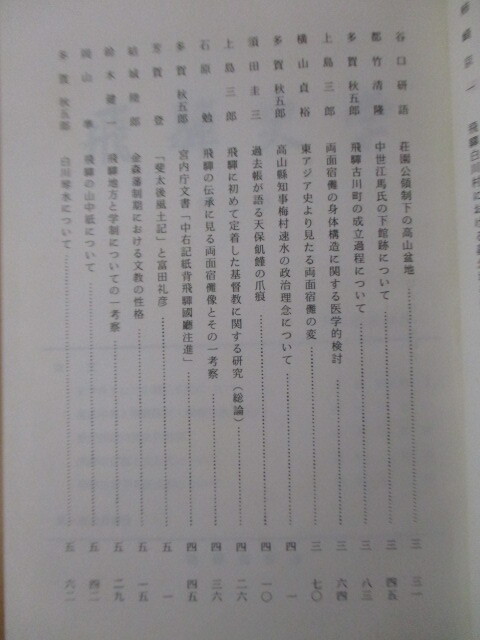 飛驒白川村における
谷口研語 荘園公領制下の高山盆地 三 三一
都竹清隆 中世江馬氏の下館跡について 三 四五
多賀秋五郎 飛驒古川町の成立過程について 三 八三
上島三郎 両面宿儺の身体構造に関する医学的検討 三 六四
横山貞裕 東アジア史より見たる両面宿儺の変 三 七〇
多賀秋五郎 高山縣知事梅村速水の政治理念について 四 一
須田圭三 過去帳が語る天保飢饉の爪痕 四 一〇
上島三郎 飛驒に初めて定着した基督教に関する研究(総論) 四 二六
石原勉 飛驒の伝承に見る両面宿儺像とその一考察 四 三六
多賀秋五郎 宮内庁文書「中右記紙背飛驒國廳注進」 四 四五
芳賀登 「斐太後風土記」と富田礼彦 五 一
結城陸郎 金森藩制期における文教の性格 五 一五
鈴木健一 飛驒地方と学制についての一考察 五 二九
岡山 飛驒の山中紙について 五 四二
多賀秋五郎 白川帰水について 五 六二